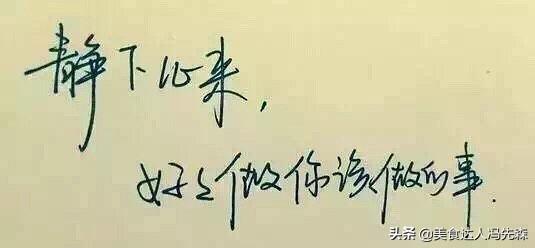 静下心来，
好好做你该做的事.
头条 @美食达人冯先森